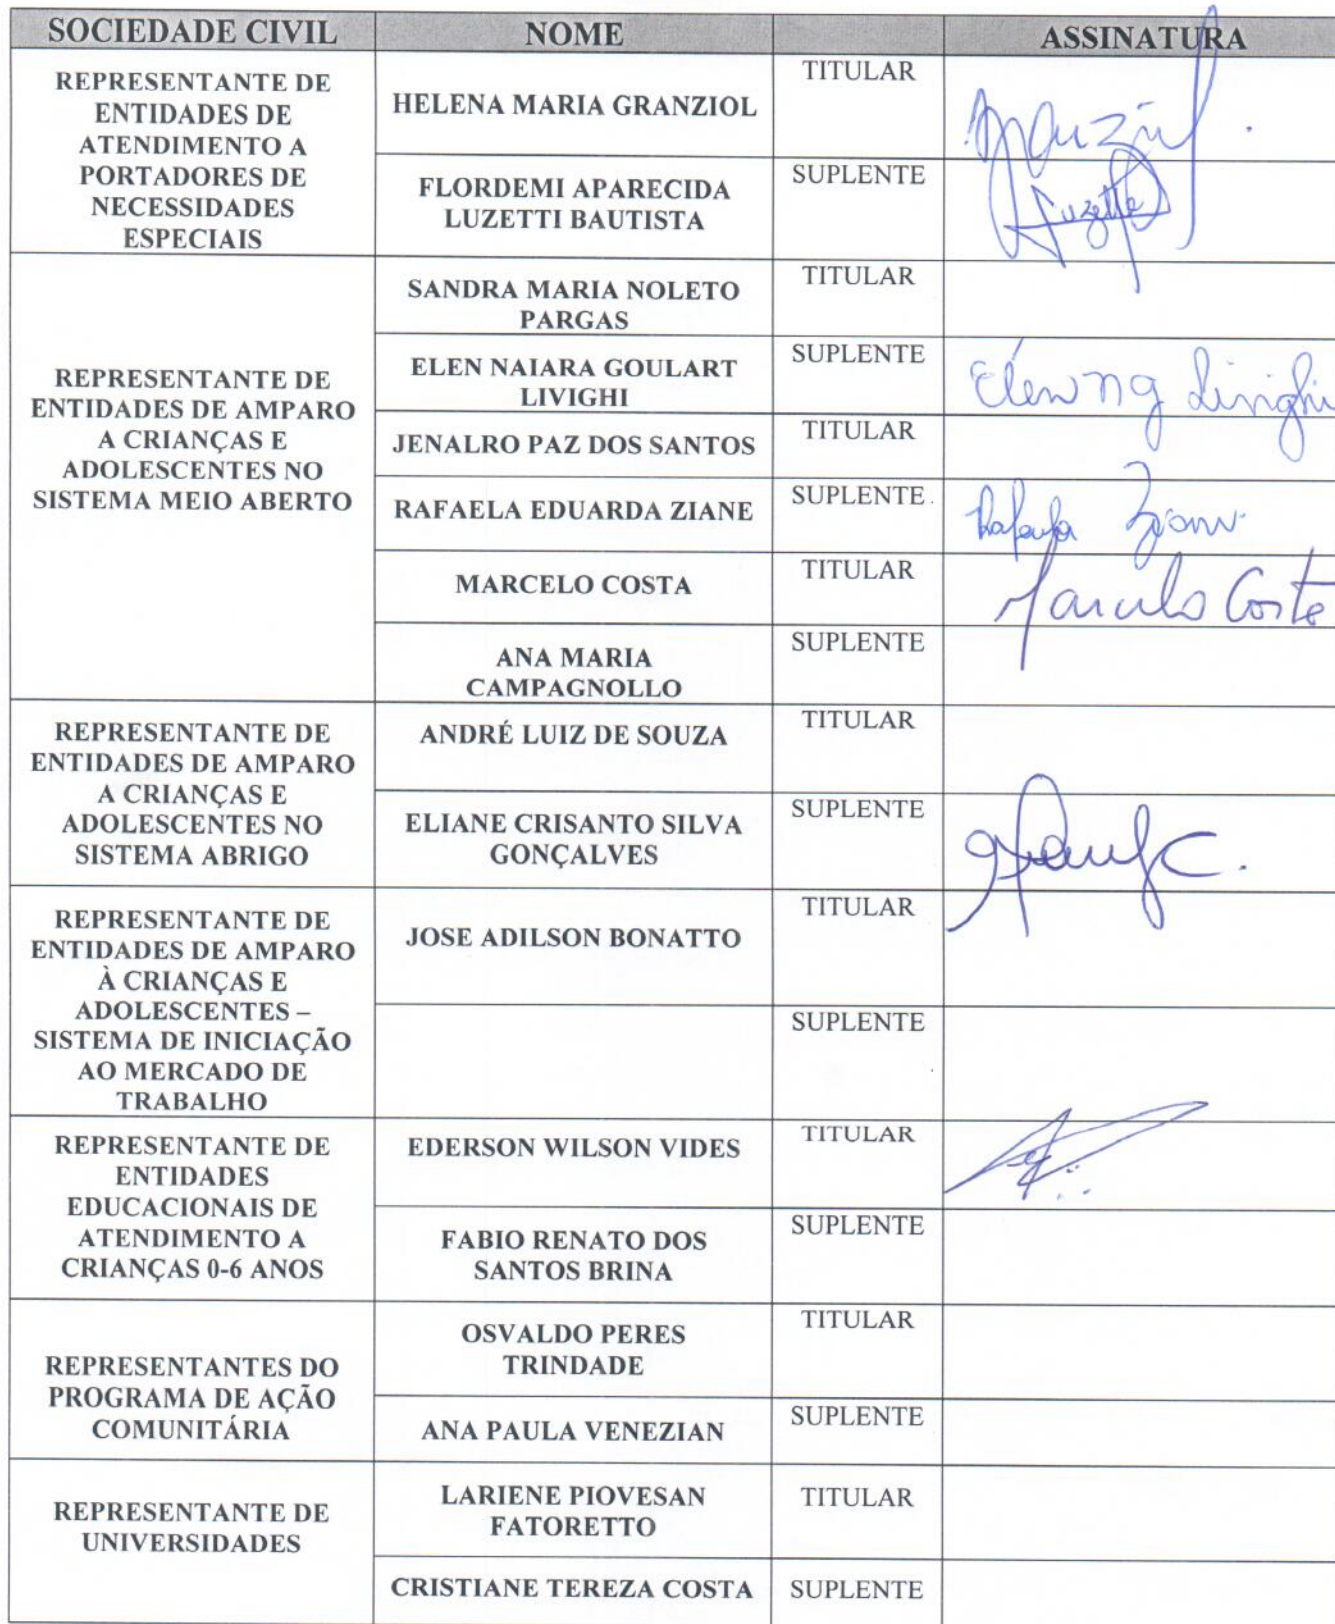 SOCIEDADE CIVIL NOME ASSINATURA
REPRESENTANTE DE
ENTIDADES DE
ATENDIMENTO A
PORTADORES DE
NECESSIDADES
ESPECIAIS
HELENA MARIA GRANZIOL
TITULAR
FLORDEMI APARECIDA
LUZETTI BAUTISTA
SUPLENTE
REPRESENTANTE DE
ENTIDADES DE AMPARO
A CRIANÇAS E
ADOLESCENTES NO
SISTEMA MEIO ABERTO
SANDRA MARIA NOLETO
PARGAS
TITULAR
ELEN NAIARA GOULART
LIVIGHI
SUPLENTE
Elen N G Livighi
JENALRO PAZ DOS SANTOS
TITULAR
RAFAELA EDUARDA ZIANE
SUPLENTE
Rafaela
MARCELO COSTA
TITULAR
Marcelo Costa
ANA MARIA
CAMPAGNOLLO
SUPLENTE
REPRESENTANTE DE
ENTIDADES DE AMPARO
A CRIANÇAS E
ADOLESCENTES NO
SISTEMA ABRIGO
ANDRÉ LUIZ DE SOUZA
TITULAR
ELIANE CRISANTO SILVA
GONÇALVES
SUPLENTE
REPRESENTANTE DE
ENTIDADES DE AMPARO
À CRIANÇAS E
ADOLESCENTES –
SISTEMA DE INICIAÇÃO
AO MERCADO DE
TRABALHO
JOSE ADILSON BONATTO
TITULAR
SUPLENTE
REPRESENTANTE DE
ENTIDADES
EDUCACIONAIS DE
ATENDIMENTO A
CRIANÇAS 0-6 ANOS
EDERSON WILSON VIDES
TITULAR
FABIO RENATO DOS
SANTOS BRINA
SUPLENTE
REPRESENTANTES DO
PROGRAMA DE AÇÃO
COMUNITÁRIA
OSVALDO PERES
TRINDADE
TITULAR
ANA PAULA VENEZIAN
SUPLENTE
REPRESENTANTE DE
UNIVERSIDADES
LARIENE PIOVESAN
FATORETTO
TITULAR
CRISTIANE TEREZA COSTA
SUPLENTE